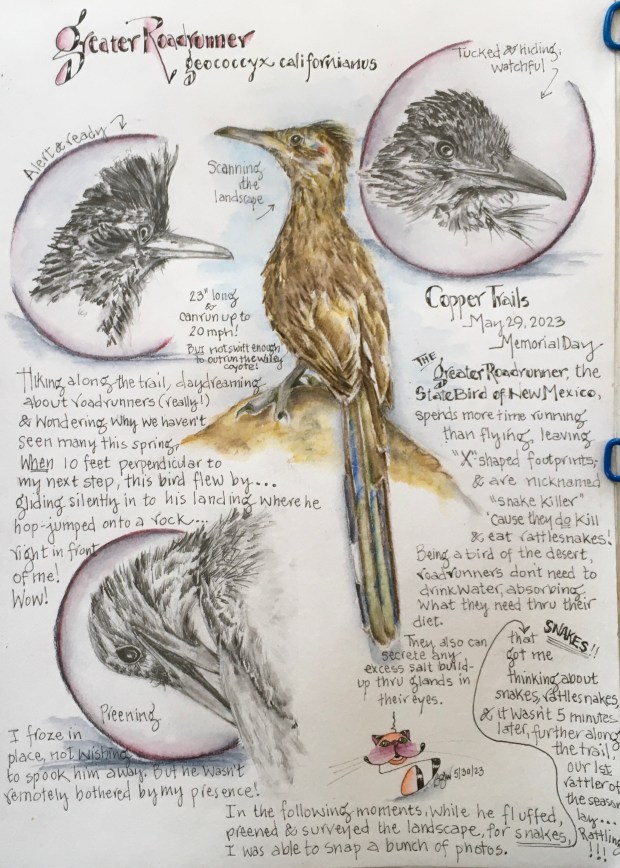 Greater Roadrunner
geococcyx californianus
Tucked & hiding;
watchful
Alert & ready
Scanning
the
landscape
23" long
&
can run up to
20 mph!
But not swift enough
to outrun the wiley
coyote!
Copper Trails
May 29, 2023
Memorial Day
Hiking along the trail, daydreaming
about roadrunners (really!)
& wondering why we haven't
seen many this spring,
When 10 feet perpendicular to
my next step, this bird flew by...
gliding silently in to his landing where he
hop-jumped onto a rock...
right in front
of me!
Wow!
THE
Greater Roadrunner, the
State Bird of New Mexico,
spends more time running
than flying, leaving
"X" shaped footprints;
& are nicknamed
"snake killer"
'cause they do kill
& eat rattlesnakes!
Being a bird of the desert,
roadrunners don't need to
drink water, absorbing
what they need thru their
diet.
They also can
secrete any
excess salt build-
up thru glands in
their eyes.
Preening
I froze in
place, not wishing
to spook him away. But he wasn't
remotely bothered by my presence!
5/30/23
In the following moments, while he fluffed,
preened & surveyed the landscape, for snakes,
I was able to snap a bunch of photos.
SNAKES!!
that
got me
thinking about
snakes, rattlesnakes,
& it wasn't 5 minutes
later, further along
the trail,
our 1st
rattler of
the season
lay...
Rattling
!!!